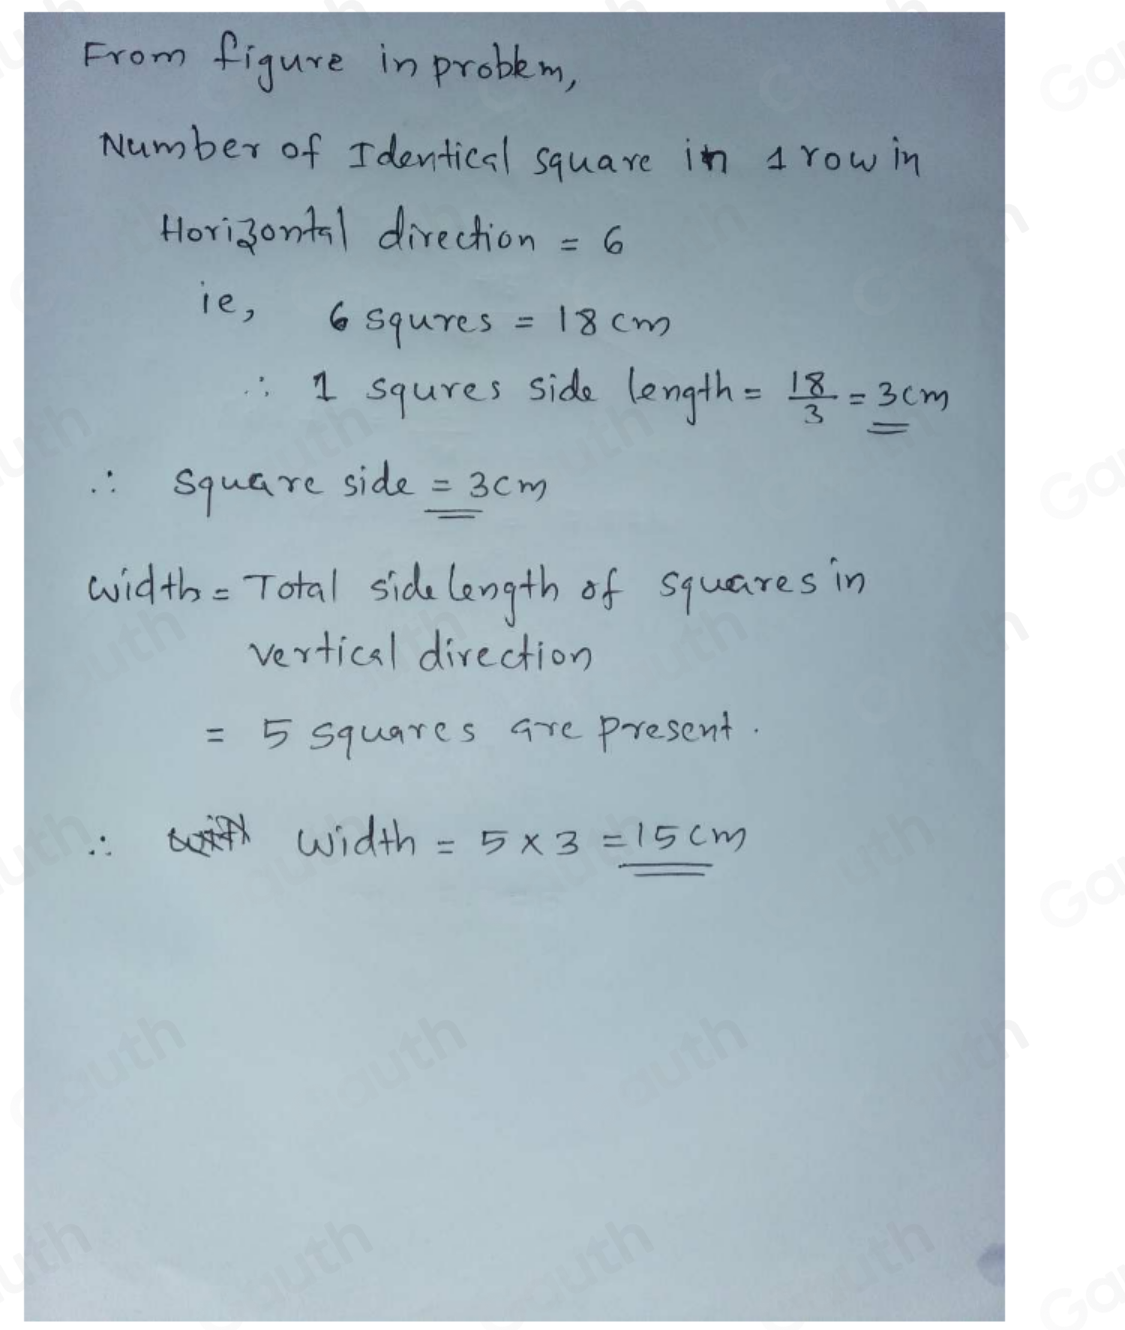 From figure in problem,
Number of Identical square in 1 row in
Horizontal direction = 6
ie, 6 squres = 18 cm
∴ 1 squres side length = 18/3 = 3cm
∴ square side = 3cm
width = Total side length of squares in
vertical direction
= 5 squares are present.
∴ width = 5 x 3 = 15 cm